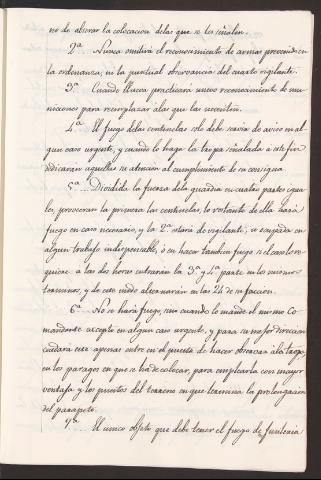 no de alterar la colocacion de las que se les señalen.
2ª... Nunca omitirá el reconocimiento de armas prevenido en
la ordenanza, ni la puntual observancia del cuarto vigilante.
3ª... Cuando llueva practicará unos reconocimientos de mu-
niciones para reemplazar á las que las necesiten.
4ª... El fuego de las centinelas solo debe servir de aviso en al-
gun caso urgente, y cuando lo haga la tropa señalada á este fin
dedicarán aquellas su atencion al cumplimiento de su consigna.
5ª... Dividida la fuerza de la guardia en cuatro partes igua-
les, proveeran la primera las centinelas, lo restante de ella hará
fuego en caso necesario, y la 2ª estará de vigilante, u ocupada en
algun trabajo indispensable, ó en hacer tambien fuego si el caso lo re-
quiere: a las dos horas entrarán la 3ª y 4ª parte en los mismos
terminos, y de este modo alcanzarán en las 24 de su faccion.
6ª... No se hará fuego, sino cuando lo mande el mismo Co-
mandante excepto en algun caso urgente, y para su mejor direccion
cuidará este apenas entre en el puesto de hacer observar á la tropa,
en los parages en que se ha de colocar, para emplearla con mayor
ventaja y los puestos del terreno en que termina la prolongacion
del parapeto.
7ª... El unico objeto que debe tener el fuego de fusileria